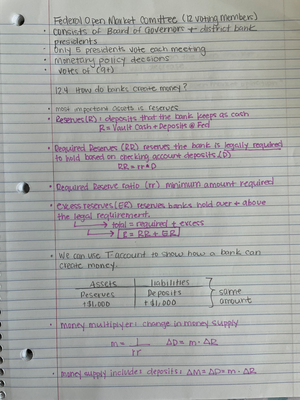 Federal Open Market Comittee (12 voting members)
• consists of Board of Governors + district bank
presidents
• Only 5 presidents vote each meeting
• Monetary policy decisions
• votes of (9+)
12.4 How do banks create money?
• most important assets is reserves
• Reserves (R): deposits that the bank keeps as cash
R = Vault Cash + Deposits @ Fed
• Required Reserves (RR) reserves the bank is legally required
to hold based on checking account deposits (D)
RR = rr * D
• Required Reserve ratio (rr) minimum amount required
• excess reserves (ER) reserves banks hold over + above
the legal requirement.
→ total = required + excess
→ R = RR + ER
• We can use T-account to show how a bank can
create money.
Assets | liabilities
Reserves | Deposits
+$1,000 | + $1,000
same
amount
• money multiplyer: change in money supply
m = 1/rr ΔD = m · ΔR
• money supply includes deposits: ΔM = ΔD = m · ΔR